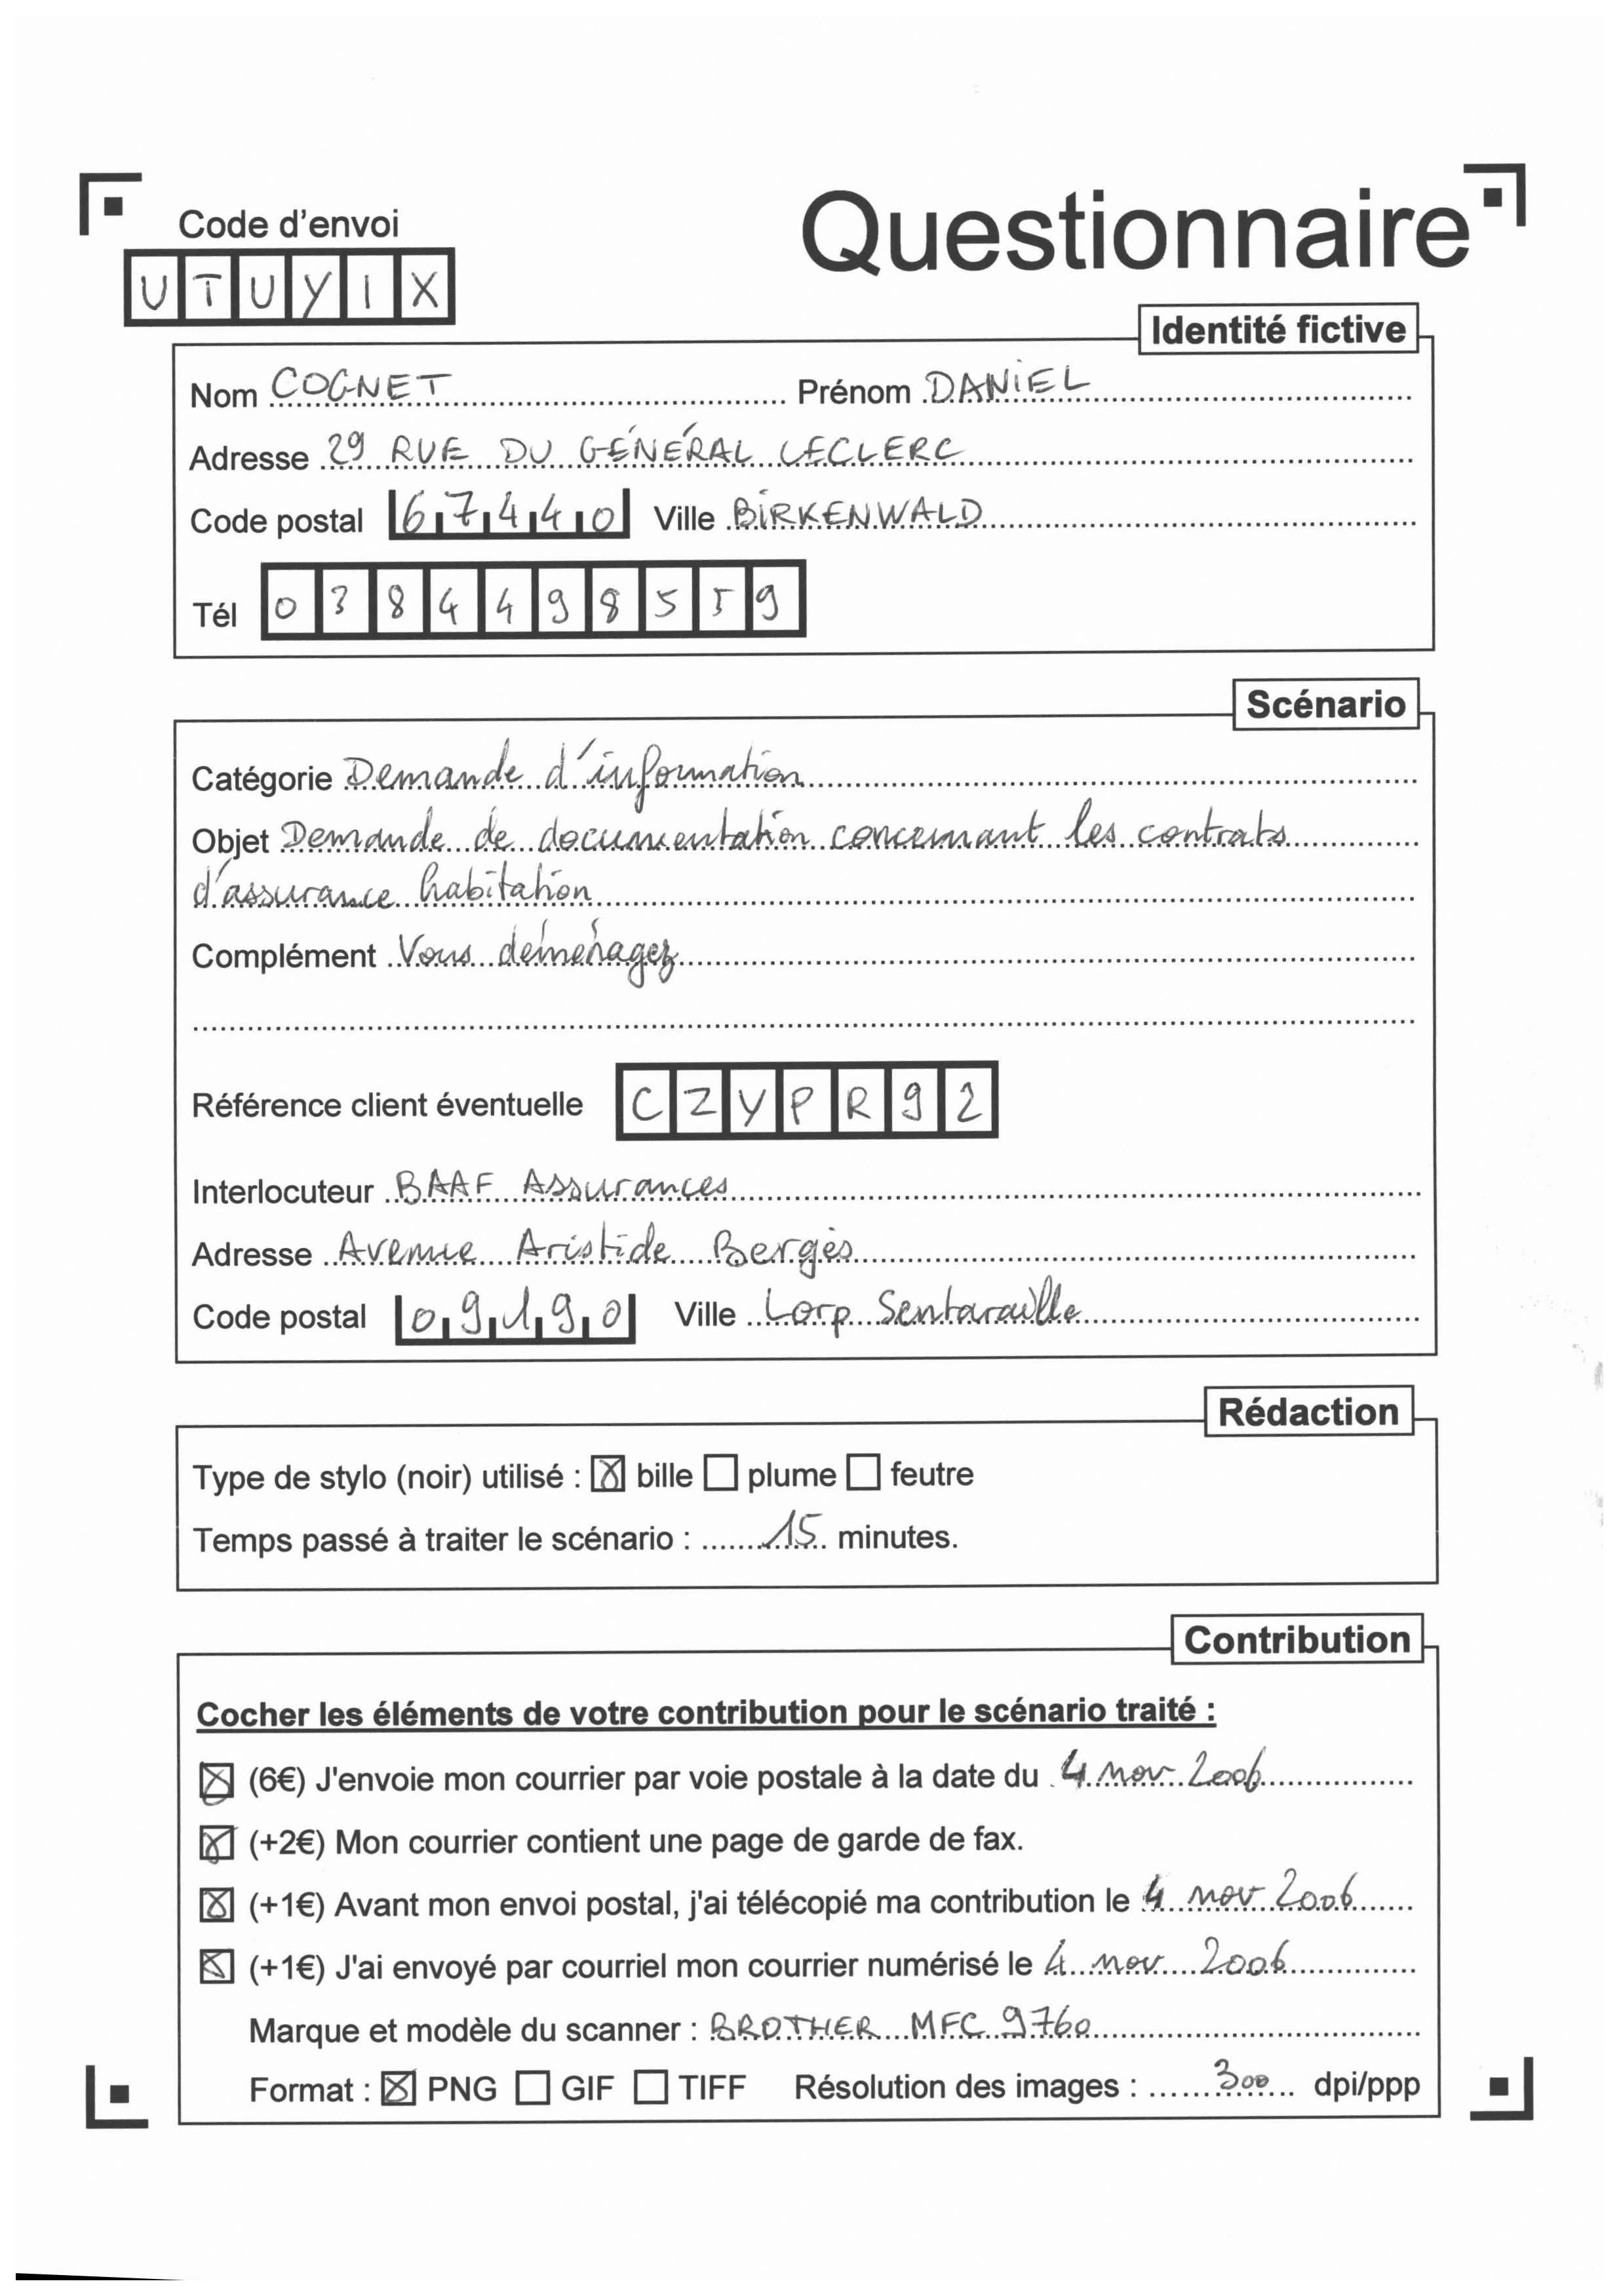 Questionnaire
Code d'envoi
UTUYIX
Identité fictive
Nom COGNET Prénom DANIEL
Adresse 29 RUE DU GÉNÉRAL LECLERC
Code postal 67440 Ville BIRKENWALD
Tél 0384498559
Scénario
Catégorie Demande d'information
Objet Demande de documentation concernant les contrats
d'assurance habitation
Complément Vous déménagez
Référence client éventuelle CZYPR92
Interlocuteur BAAF Assurances
Adresse Avenue Aristide Bergès
Code postal 09190 Ville Lorp Sentaraille
Rédaction
Type de stylo (noir) utilisé : ☒ bille ☐ plume ☐ feutre
Temps passé à traiter le scénario : 15 minutes.
Contribution
Cocher les éléments de votre contribution pour le scénario traité :
☒ (6€) J'envoie mon courrier par voie postale à la date du 4 nov 2006
☒ (+2€) Mon courrier contient une page de garde de fax.
☒ (+1€) Avant mon envoi postal, j'ai télécopié ma contribution le 4 nov 2006
☒ (+1€) J'ai envoyé par courriel mon courrier numérisé le 4 nov 2006
Marque et modèle du scanner : BROTHER MFC 9760
Format : ☒ PNG ☐ GIF ☐ TIFF Résolution des images : 300 dpi/ppp